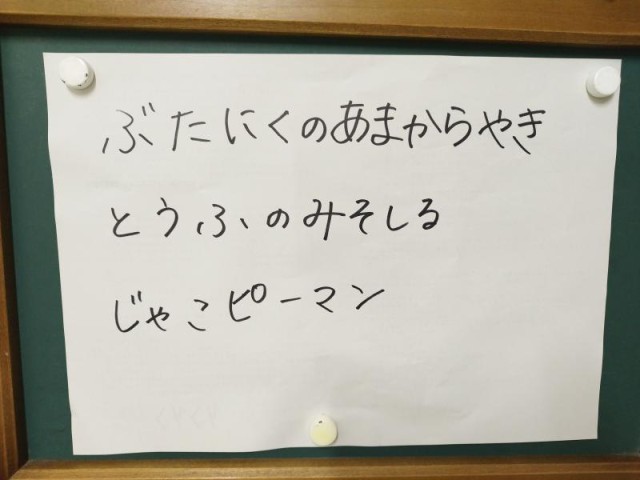 ぶたにくのあまからやき
とうふのみそしる
じゃこピーマン